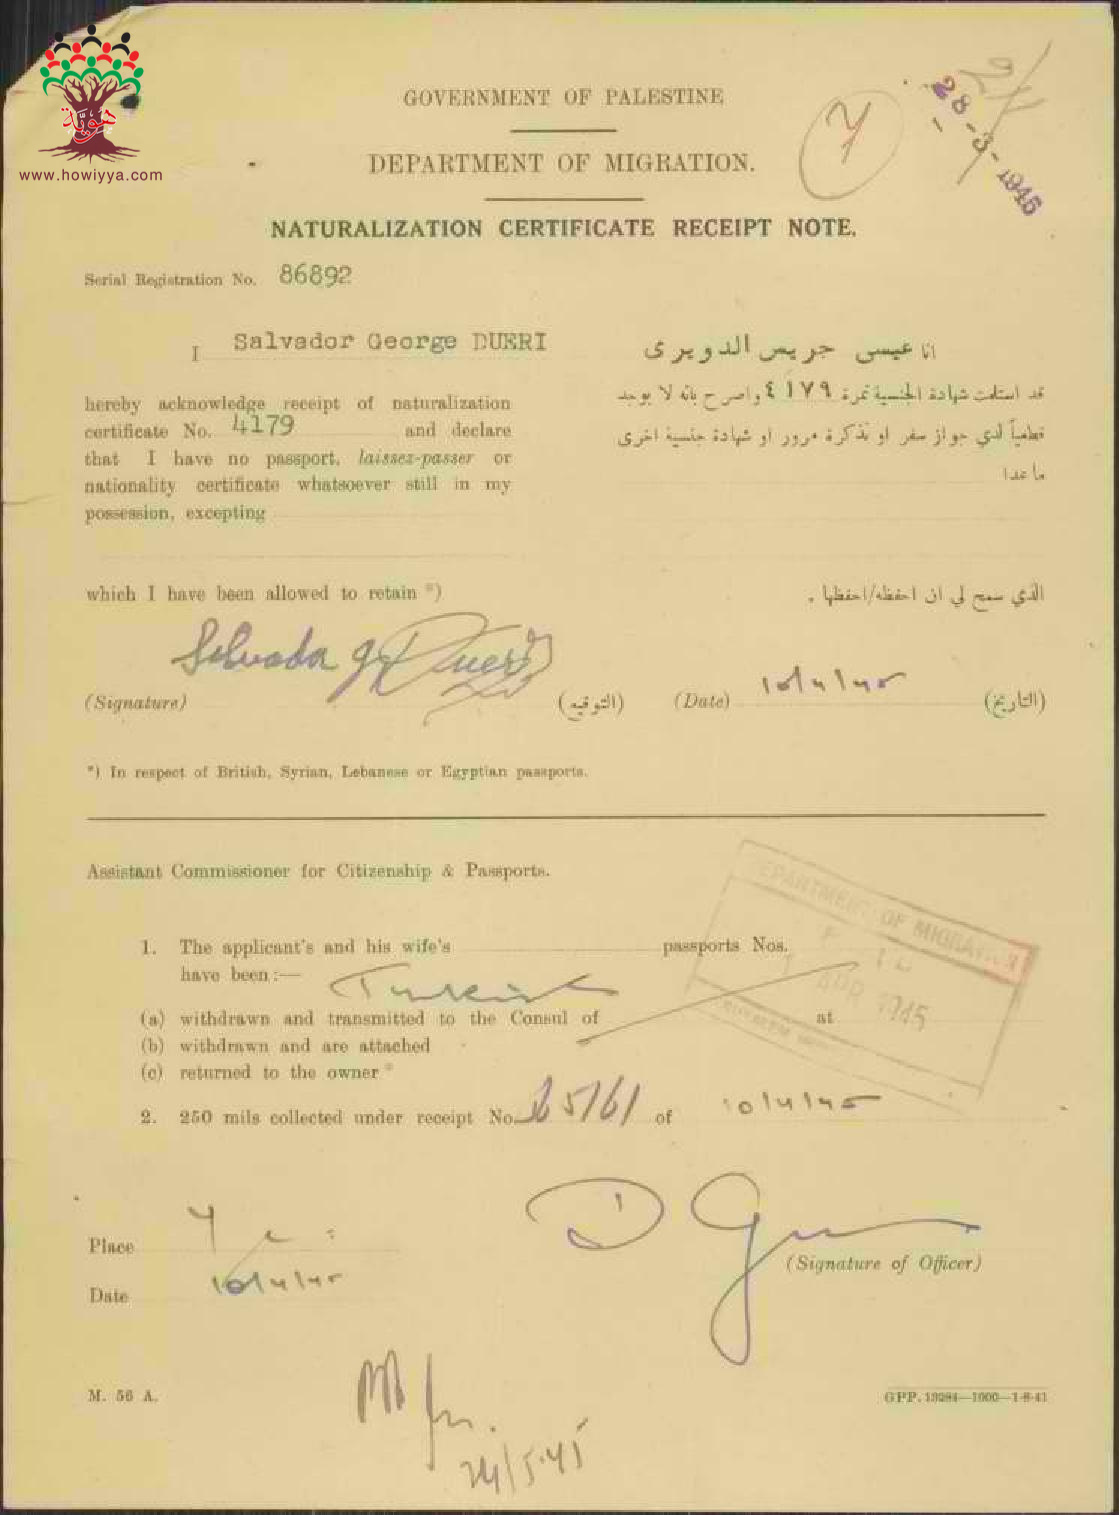 هوية
www.howiyya.com
GOVERNMENT OF PALESTINE
DEPARTMENT OF MIGRATION.
28-3-1945
NATURALIZATION CERTIFICATE RECEIPT NOTE.
Serial Registration No. 86892
I Salvador George DUERI
hereby acknowledge receipt of naturalization
certificate No. 4179 and declare
that I have no passport, laissez-passer or
nationality certificate whatsoever still in my
possession, excepting
انا عيسى جريس الدويرى
قد استلمت شهادة الجنسية نمرة ٤١٧٩ واصرح بانه لا يوجد
قطعياً لدي جواز سفر او تذكرة مرور او شهادة جنسية اخرى
ما عدا
which I have been allowed to retain *)
الذي سمح لي ان احفظه/احفظها .
Salvador G. Dueri
(Signature) (التوقيع) (Date) 10/4/45 (التاريخ)
*) In respect of British, Syrian, Lebanese or Egyptian passports.
Assistant Commissioner for Citizenship & Passports.
DEPARTMENT OF MIGRATION
APR 1945
1. The applicant's and his wife's passports Nos.
have been :— Turkish
(a) withdrawn and transmitted to the Consul of at
(b) withdrawn and are attached
(c) returned to the owner *
2. 250 mils collected under receipt No. 65161 of 10/4/45
Place
Date 10/4/45
(Signature of Officer)
24/5.45
M. 56 A.
GPP. 13284—1000—1-8-41